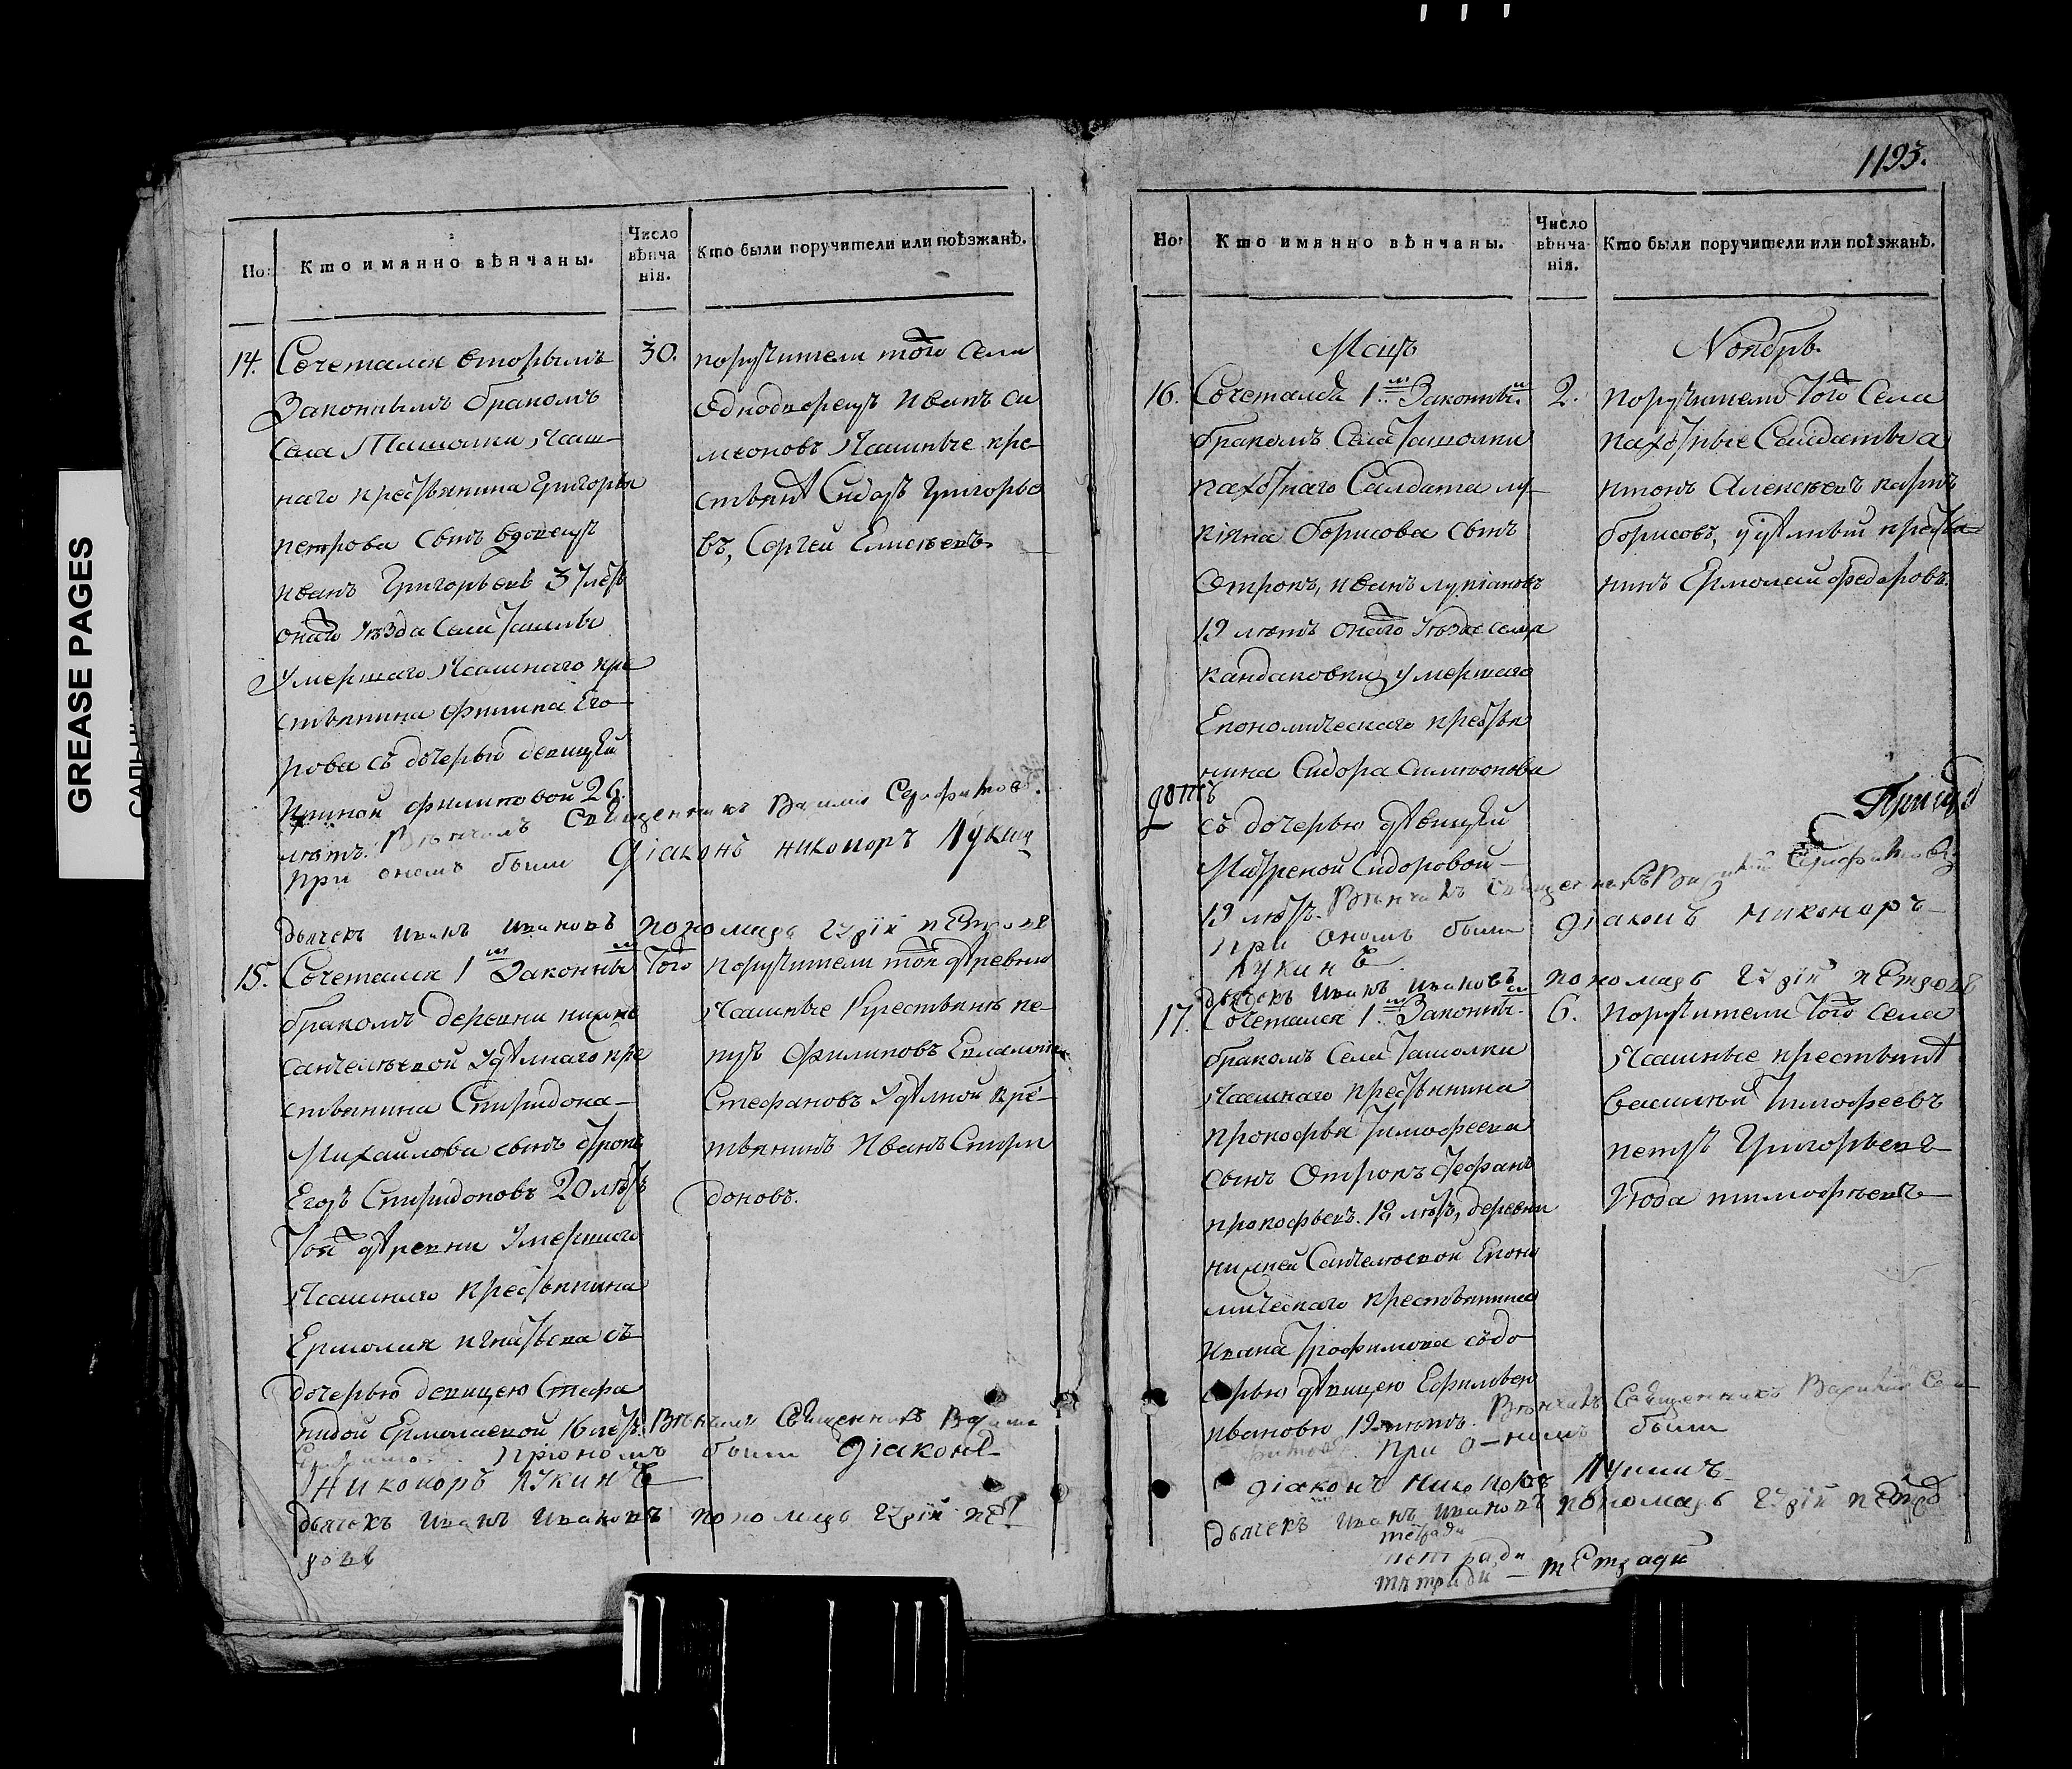 GREASE PAGES
1193.
Но:
Кто имянно вѣнчаны.
Число вѣнчанія.
Кто были поручители или поѣзжанѣ.
14. Сочетался вторымъ
Законнымъ бракомъ
Села Ташолки Яшаш-
наго крестьянина Григорья
петрова сынъ вдовецъ
иванъ Григорьевъ 37 лѣтъ
онаго уѣзда Села
умершаго Ясашнаго кре
стьянина филипа Его-
рова съ дочерью девицей
филиповой 26
лѣтъ. Вѣнчалъ Священникъ Василий Серафимовъ.
при ономъ были діаконъ никоноръ Лукин
дьячекъ иванъ ивановъ пономарь пЕтровъ
30.
поручители того села
однодворецъ иванъ си
меоновъ Ясашные кре-
стьянѣ Сидоръ Григорье
въ, Сергей Елисѣевъ
15. Сочетался 1 м Законны м
бракомъ деревни нижне
санчелѣевой удѣлнаго кре
стьянина Спиридона
Михаилова сынъ отрокъ
Егоръ Спиридоновъ 20 лѣтъ
той дѣревни умершаго
Ясашнаго крестьянина
Ермолая игнатьева съ
дочерью девицею Стефа
нидой Ермолаевой 16 лѣтъ. Вѣнчалъ Священникъ Васили
при ономъ были діаконъ
Никоноръ лукинъ
дьячекъ иванъ ивановъ пономарь пЕт
ровъ
Того
поручители той дѣревни
Ясашные Крестьянѣ пе-
тръ Филиповъ
Стефановъ удѣлной кре-
стьянинъ Иванъ Спири
доновъ.
Но:
Кто имянно вѣнчаны.
Число вѣнчанія.
Кто были поручители или поѣзжанѣ.
Мсцъ
Ноябрь.
16. Сочетался 1. м Законны м
бракомъ Села Ташолки
пахотнаго Салдата лу-
кіяна борисова сынъ
Отрокъ, иванъ лукіановъ
19 лѣтъ онаго уѣзда села
кандаковки умершаго
Економическаго крестья
нина Сидора Симионова
съ дочерью дѣвицей
Матреной Сидоровой
19 лѣтъ. Вѣнчалъ Священникъ Василий Серафимовъ
при ономъ были діаконъ никоноръ
Лукинъ
дьячекъ иванъ ивановъ пономарь пЕтровъ
2.
поручители того Села
пахотные Салдаты а
нтонъ Алексѣевъ карпъ
борисовъ, удѣлный крестья-
нинъ Ермолай федоровъ.
17. Сочетался 1. м Законны м
бракомъ Села Ташолки
Ясашнаго крестьянина
прокофья Тимофеева
сынъ Отрокъ
прокофьевъ. 18 лѣтъ, деревни
нижней Санчелѣевой Еконо
мическаго крестьянина
ивана Трофимова съ до
черью дѣвицею
ивановою 19 лѣтъ. Вѣнчалъ Священникъ Василий Сер
при ономъ были
діаконъ никоноръ Лукинъ
дьячекъ иванъ ивановъ пономарь пЕтров
6.
поручители Того Села
Ясашные крестьянѣ
Василий Тимофеевъ
петръ Григорьевъ
тимофѣевъ
тетради
тетради
тетради – тЕтради